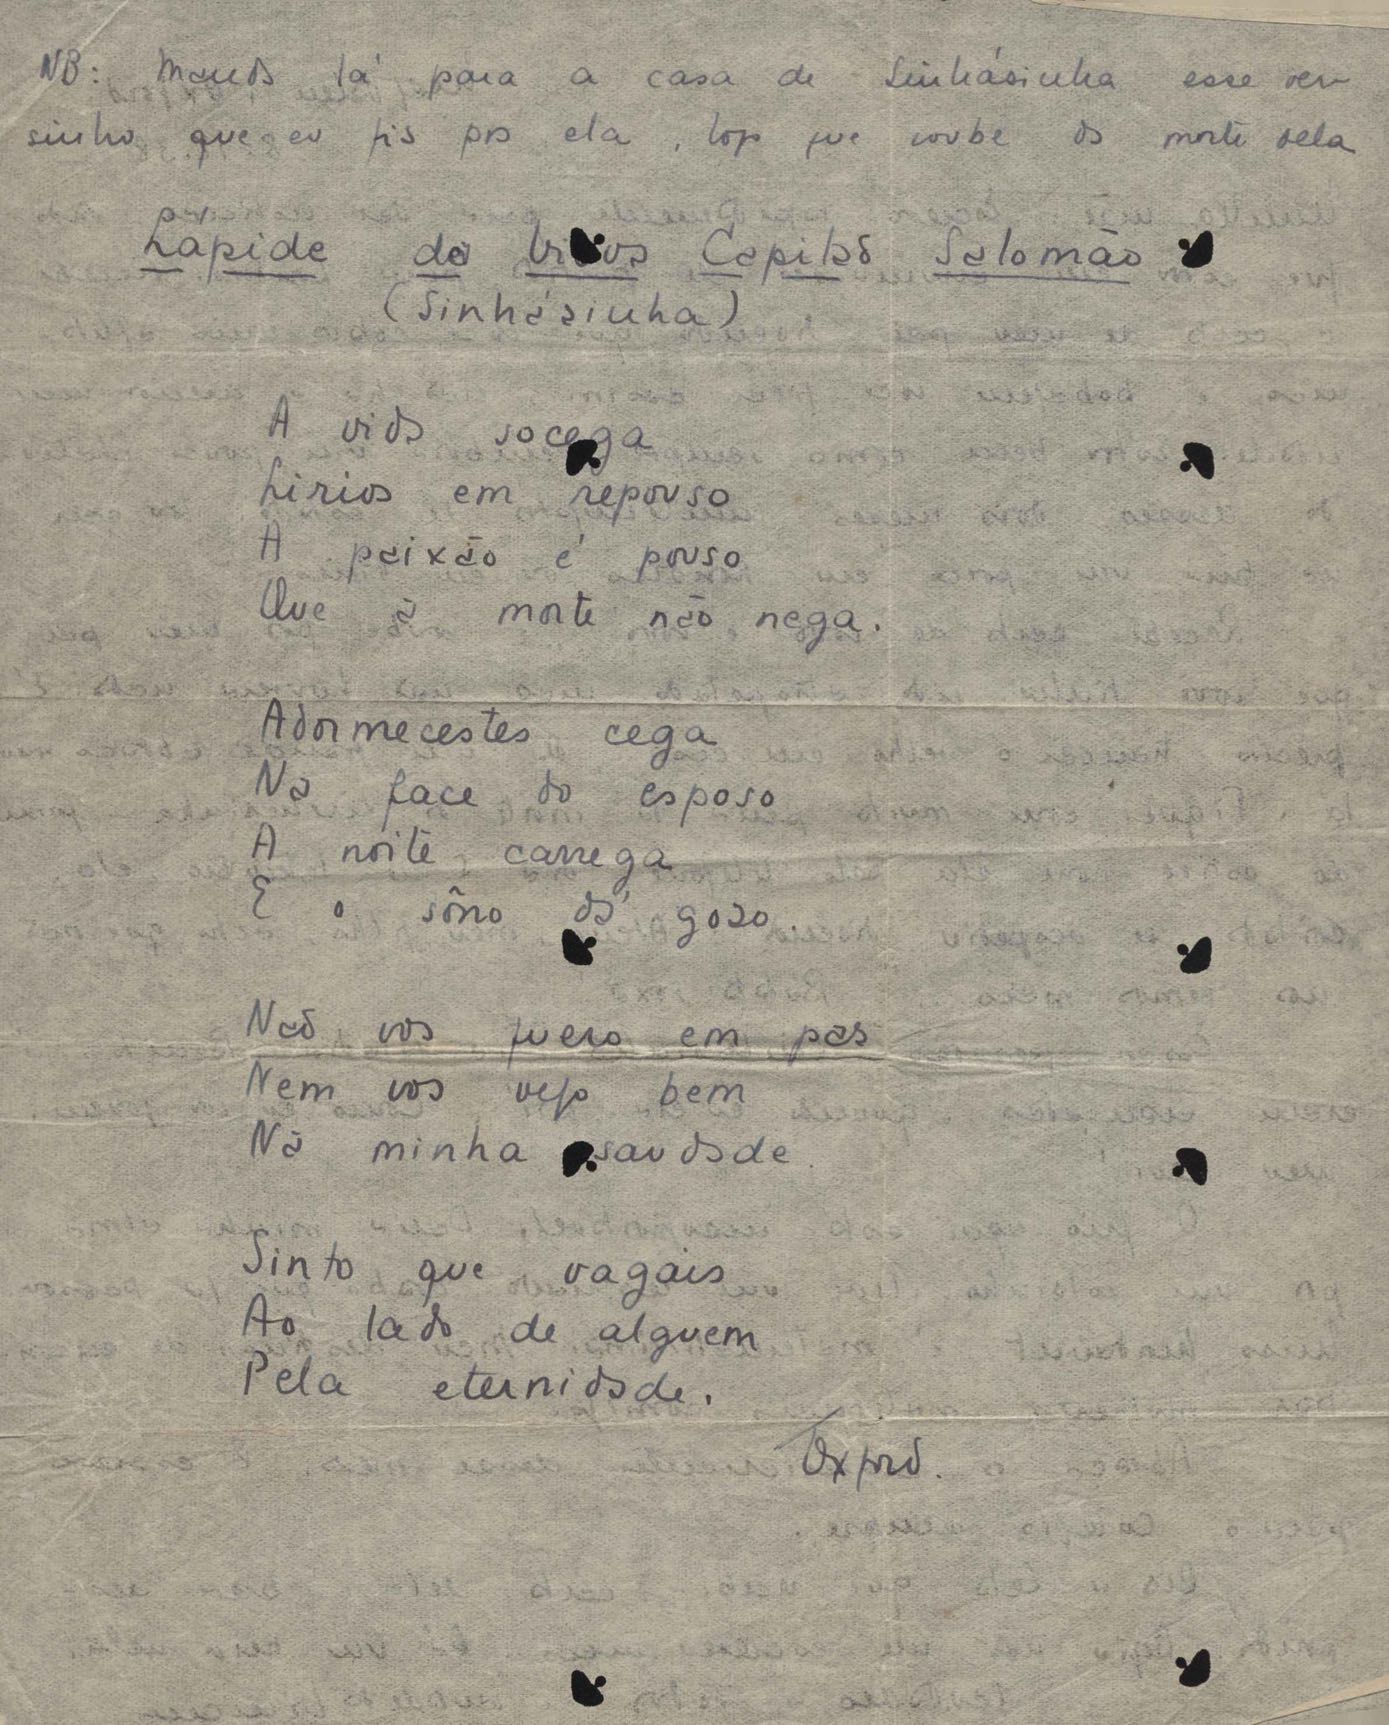 NB: Manda lá para a casa de Sinhásinha esse ver
sinho que eu fis pra ela, logo que soube da morte dela
Lápide da Capitão Salomão
(Sinhásinha)
A vida socega
Lirios em repouso
A paixão é pouso
Que à morte não nega.
Adormecestes cega
Na face do esposo
A noite carrega
E o sôno dá goso
Não vos quero em pas
Nem vos vejo bem
Na minha saudade.
Sinto que vagais
Ao lado de alguem
Pela eternidade.
Oxford.